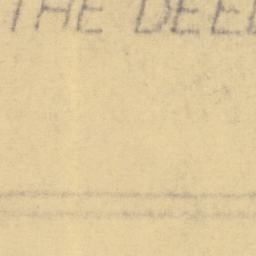 THE DEED